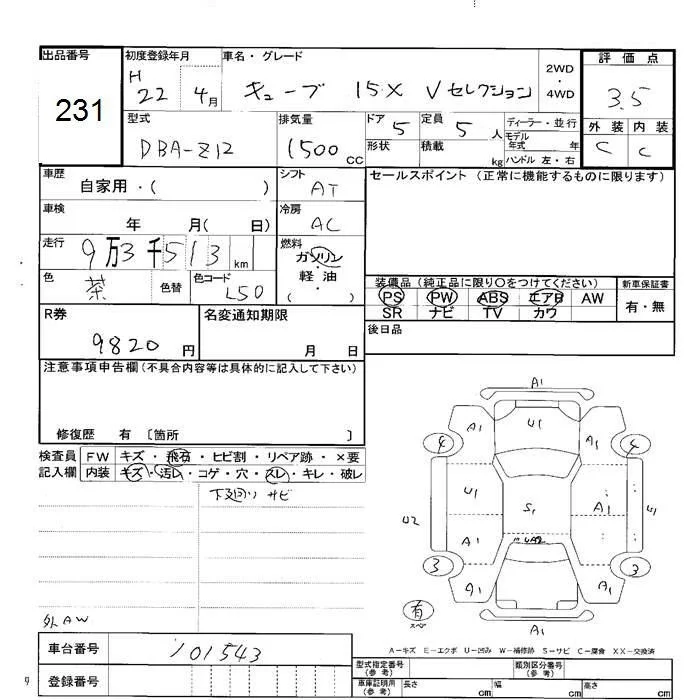 出品番号
231
初度登録年月
H
22 4月
車名・グレード
キューブ 15X Vセレクション
2WD
・
4WD
評価点
3.5
外装 内装
C C
型式
DBA-Z12
排気量
1500cc
ドア 5
形状
定員 5人
積載 kg
ディーラー・並行
モデル
年式 年
ハンドル 左・右
車歴
自家用・( )
シフト
AT
セールスポイント(正常に機能するものに限ります)
車検
年 月( 日)
冷房
AC
走行
9万3千513km
燃料
ガソリン
軽・油
( )
色
茶
色替
色コード
L50
装備品(純正品に限り○をつけてください)
PS PW ABS エアB AW
SR ナビ TV カワ
新車保証書
有・無
R券
9820円
名変通知期限
月 日
後日品
注意事項申告欄(不具合内容等は具体的に記入して下さい)
修復歴 有 〔箇所 〕
検査員
記入欄
FW キズ・飛石・ヒビ割・リペア跡・×要
内装 キズ・汚レ・コゲ・穴・スレ・キレ・破レ
下廻り サビ
外AW
A1
A1 U1 A1
4 4
U1 A1
U2 S1 U1
A1 A1
3 3
A1 A1
A1
有
スペア
A-キズ E-エクボ U-凹み W-補修跡 S-サビ C-腐食 XX-交換済
車台番号
101543
登録番号
型式指定番号
(参考)
類別区分番号
(参考)
車庫証明用
(参考)
長さ cm
幅 cm
高さ cm